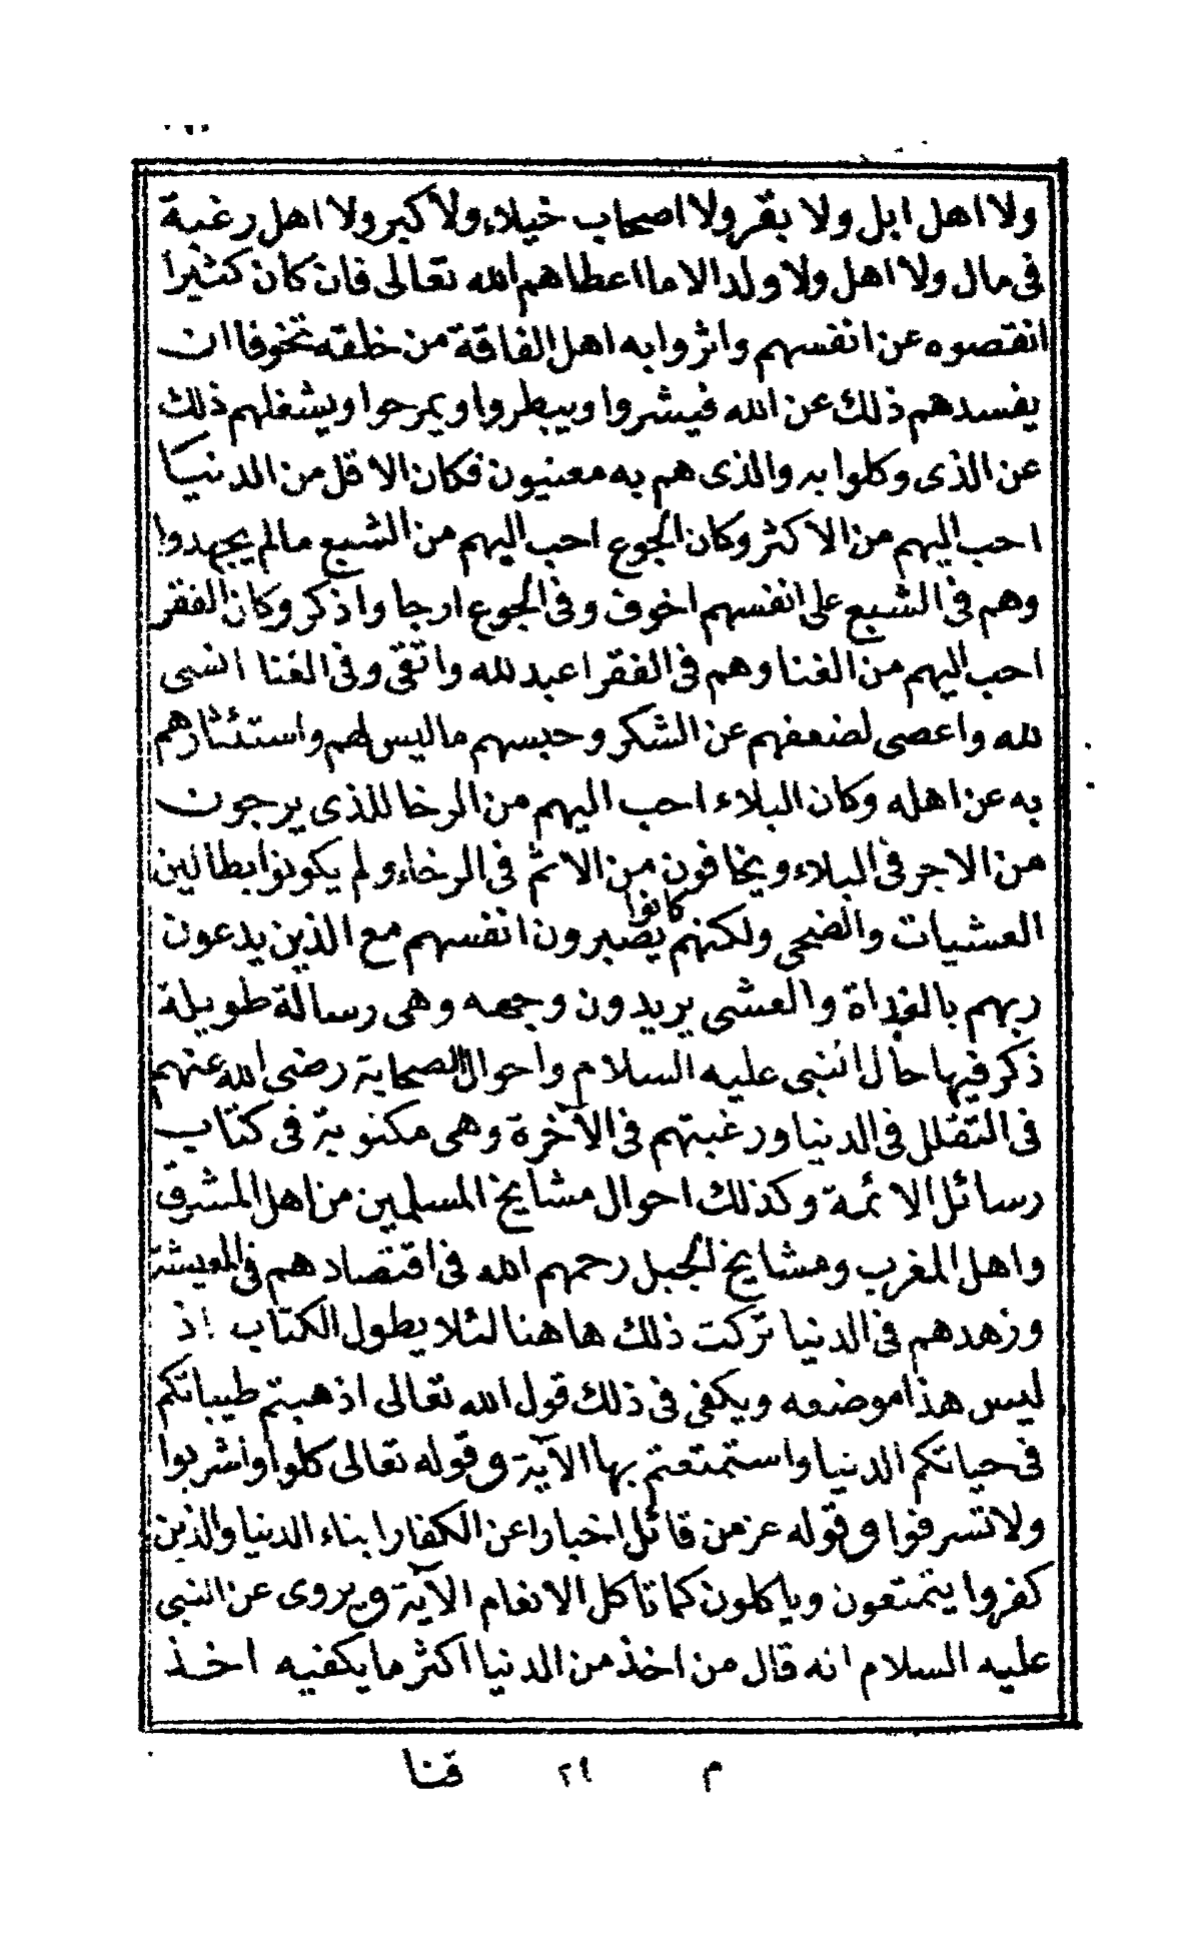 ولا اهل ابل ولا بقر ولا اصحاب خيلاء ولا كبر ولا اهل رغبة
فى مال ولا اهل ولا ولد الا ما اعطاهم الله تعالى فان كان كثيرا
انقصوه عن انفسهم واثروا به اهل الفاقة من خلقه تخوفا ان
يفسدهم ذلك عن الله فيشروا ويبطروا ويمرحوا ويشغلهم ذلك
عن الذى وكلوا به والذى هم به معنيون فكان الاقل من الدنيا
احب اليهم من الاكثر وكان الجوع احب اليهم من الشبع مالم يجهدوا
وهم فى الشبع على انفسهم اخوف وفى الجوع ارجا واذكر وكان الفقر
احب اليهم من الغنا وهم فى الفقر اعبد لله واتقى وفى الغنا انسى
لله واعصى لضعفهم عن الشكر وحبسهم ماليس لهم واستئثارهم
به عن اهله وكان البلاء احب اليهم من الرخا للذى يرجون
من الاجر فى البلاء ويخافون من الاثم فى الرخاء ولم يكونوا بطالين
العشيات والضحى ولكنهم كانوا يصبرون انفسهم مع الذين يدعون
ربهم بالغداة والعشى يريدون وجهه وهى رسالة طويلة
ذكر فيها حال النبى عليه السلام واحوال الصحابة رضى الله عنهم
فى التقلل فى الدنيا ورغبتهم فى الآخرة وهى مكتوبة فى كتاب
رسائل الائمة وكذلك احوال مشايخ المسلمين من اهل المشرق
واهل المغرب ومشايخ الجبل رحمهم الله فى اقتصادهم فى المعيشة
وزهدهم فى الدنيا تركت ذلك هاهنا لئلا يطول الكتاب اذ
ليس هذا موضعه ويكفى فى ذلك قول الله تعالى اذهبتم طيباتكم
فى حياتكم الدنيا واستمتعتم بها الآية وقوله تعالى كلوا واشربوا
ولا تسرفوا وقوله عز من قائل اخبارا عن الكفار ابناء الدنيا والذين
كفروا يتمتعون وياكلون كما تاكل الانعام الآية ويروى عن النبى
عليه السلام انه قال من اخذ من الدنيا اكثر ما يكفيه اخذ
م ٢٤ قنا